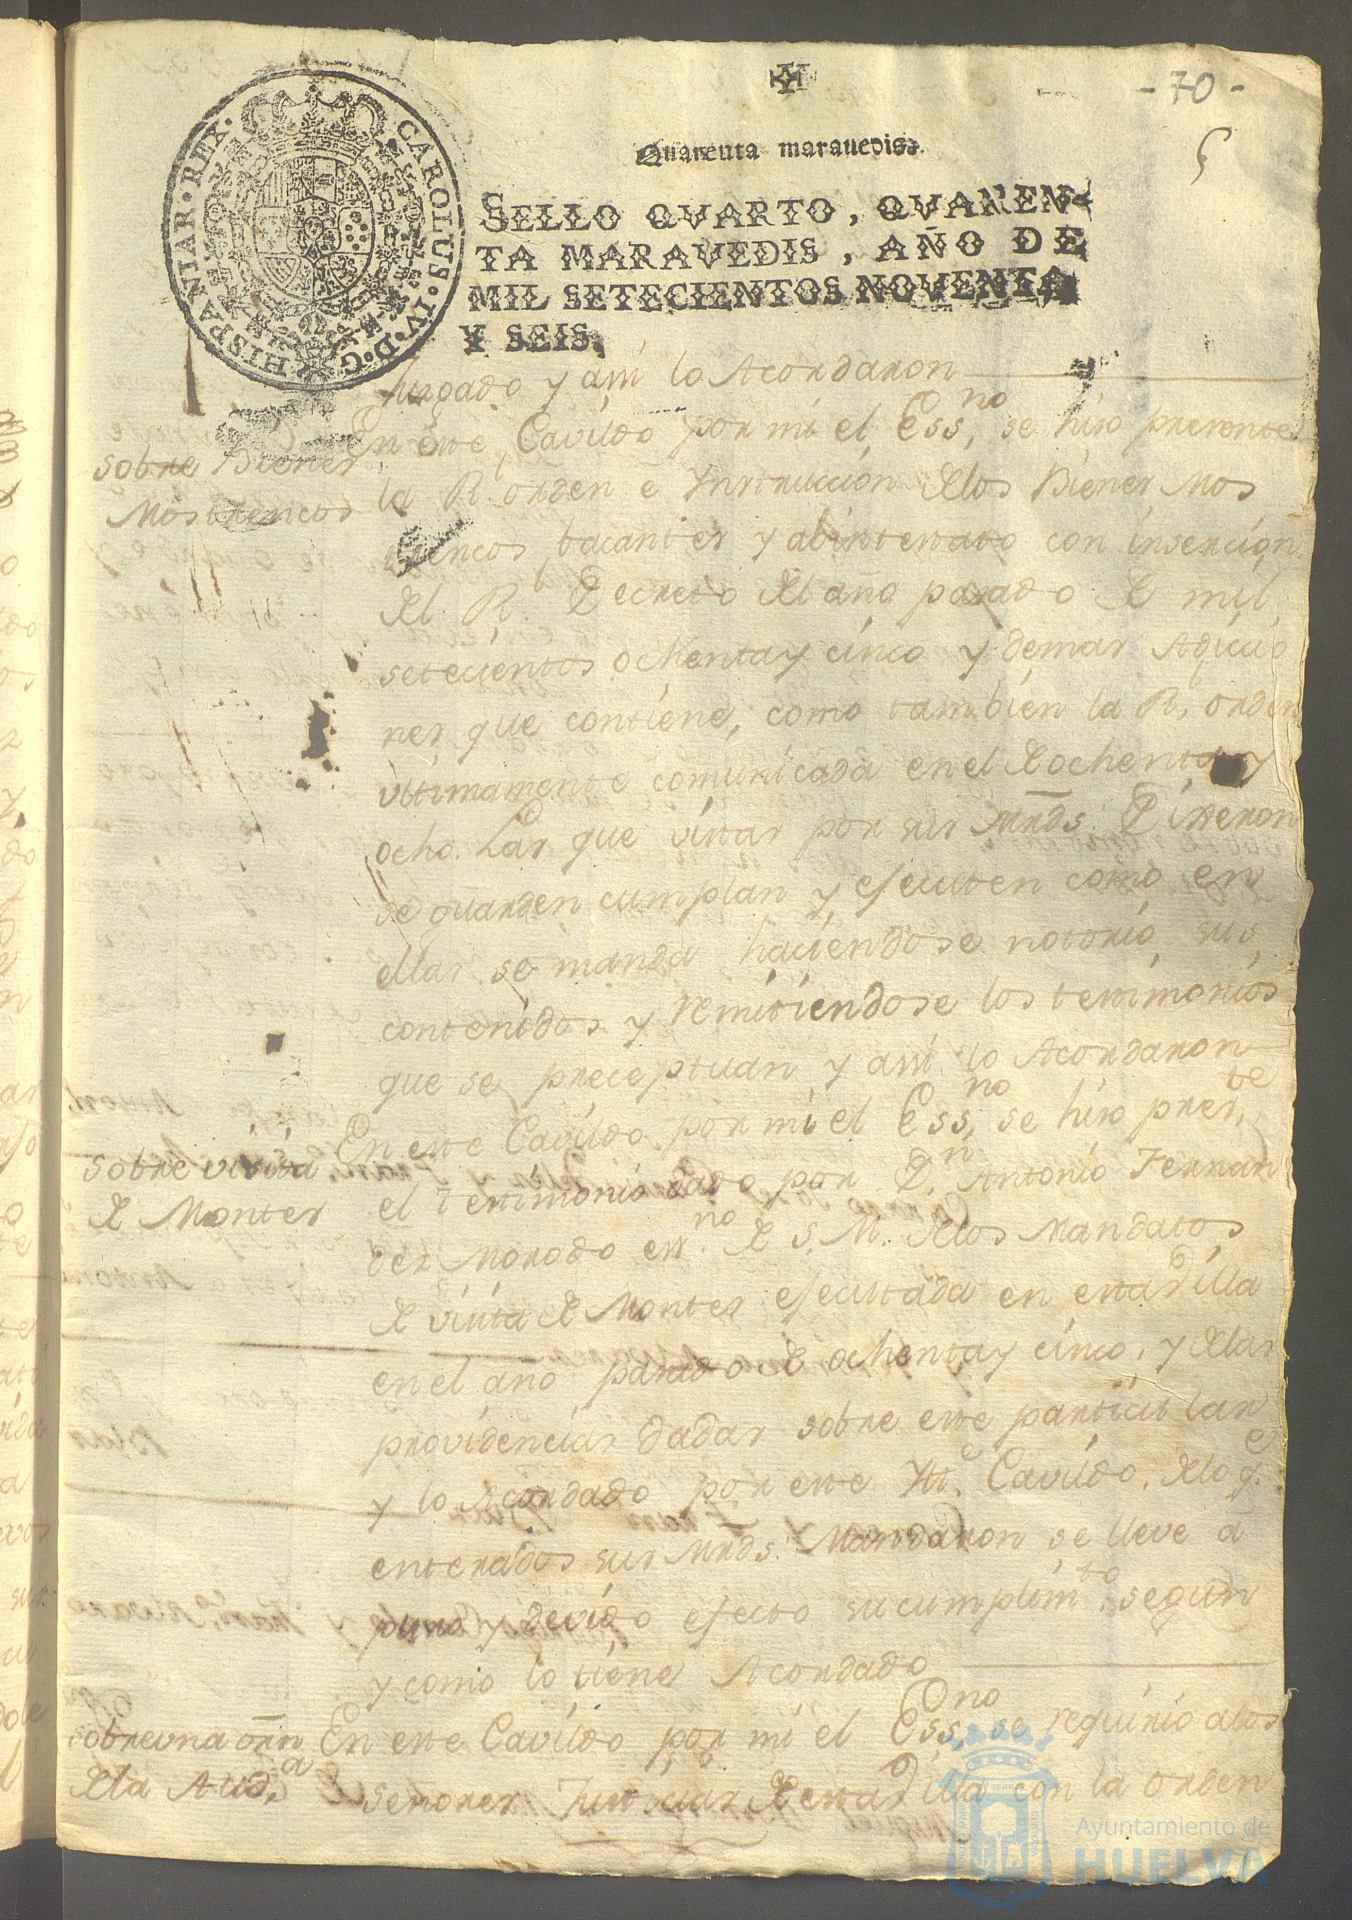 -70-
5
Quarenta maravedis.
CAROLUS·IV·D·G·HISPANIAR·REX·
SELLO QVARTO, QVAREN-
TA MARAVEDIS, AÑO DE
MIL SETECIENTOS NOVENTA
Y SEIS.
Juzgado y assi lo Acordaron
sobre Bienes
Mostrencos
En este Cavildo por mi el Ess.no se hizo presente
la Rl orden e Ynstruccion de los Bienes Mos
trencos, bacantes y abintestato con insercion
del Rl Decreto del año pasado de mil
setecientos ochenta y cinco y demas Adicio
nes que contiene, como tambien la Rl orden
ultimamente comunicada en el de ochenta y
ocho. Las que vistas por sus Mrds. Dixeron
se guarden cumplan y ejecuten como en
ellas se manda haciendose notorio sus
contenidos y remitiendose los testimonios
que se preceptuan y assi lo Acordaron
sobre visita
de Montes
En este Cavildo por mi el Ess.no se hizo pres.te
el testimonio dado por D.n Antonio Fernan
dez Morodo ess.no de S. M. de los Mandatos
de visita de Montes ejecutada en esta Villa
en el año pasado de ochenta y cinco, y de las
providencias dadas sobre este particular
y lo Acordado por este Ytt.e Cavildo, de lo q.e
enterados sus Mrds. Mandaron se lleve a
puro y devido efecto su cumplim.to segun
y como lo tiene Acordado
sobre una orn
de la Aud.a
En este Cavildo por mi el Ess.no se requirio a los
señores Justicias de esta Villa con la orden
Ayuntamiento de
HUELVA